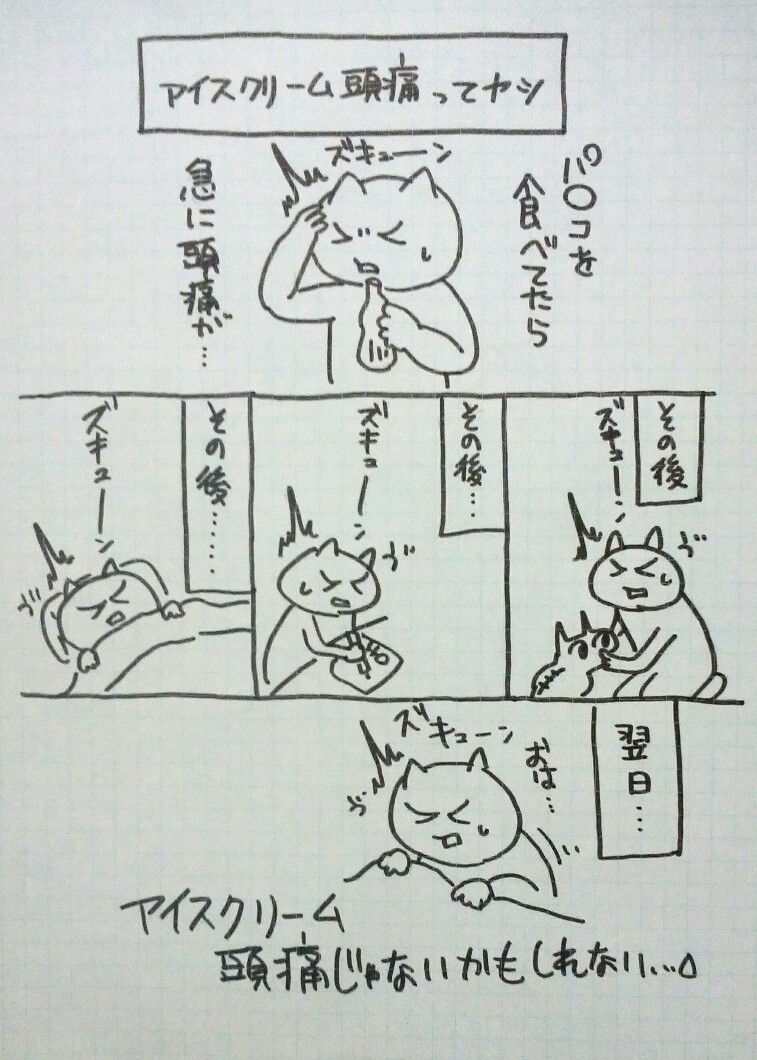 アイスクリーム頭痛ってヤシ
パ〇コを
食べてたら
ズキューーン
急に頭痛が…
その後
ズキューーン
ゔ
その後…
ズキューーン
ゔ
その後……
ズキューーン
ゔ
翌日…
おは…
ズキューーン
ゔ
アイスクリーム
頭痛じゃないかもしれない…